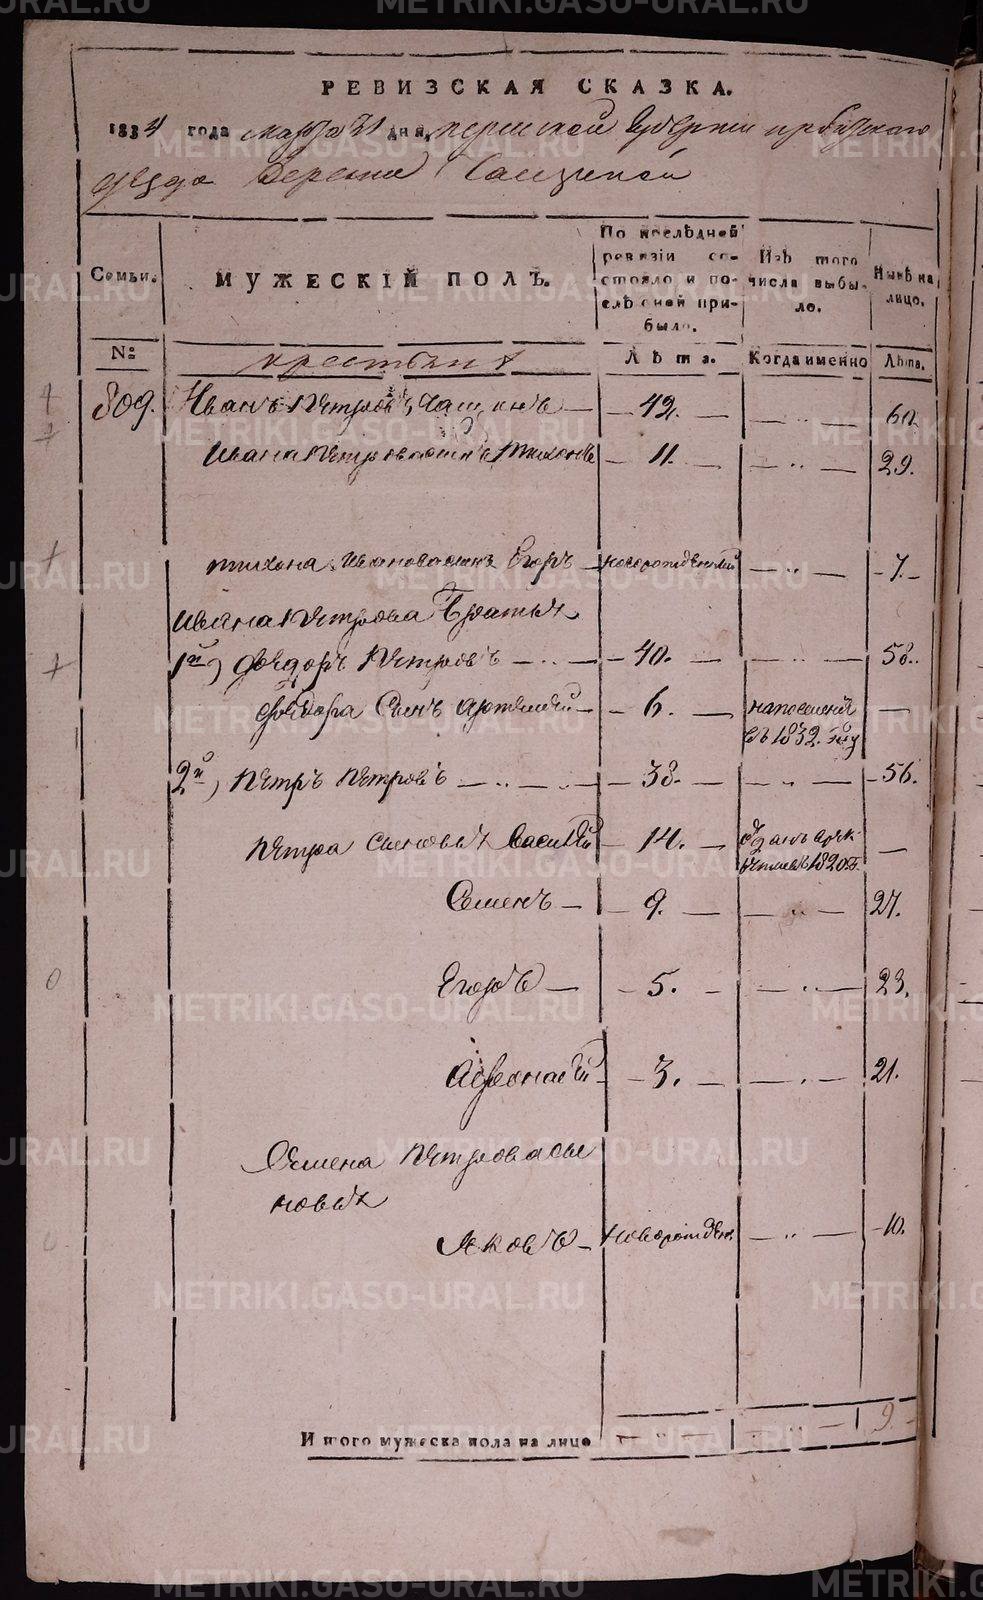 РЕВИЗСКАЯ СКАЗКА.
1834 года марта 31 дня, пермской Губернии ирбитского
уезда деревни
Семьи.
МУЖЕСКІЙ ПОЛЪ.
По послѣдней ревизіи состояло и послѣ оней прибыло.
Изъ того числа выбыло.
Нынѣ на лицо.
№
крестьянъ
Лѣта.
Когда именно
Лѣта.
809. Иванъ Петровъ Чащинъ — 42. — „ — 60.
Ивана Петрова сынъ Тихонъ — 11. — „ — 29.
тихона Иванова сынъ Егоръ — новорожденный — „ — 7.
Ивана Петрова Братья
1й, Федоръ Петровъ — „ — 40. — „ — 58.
Федора Сынъ Артемей — 6. — на поселеній въ 1832. году —
2й, Петръ Петровъ — „ — 38. — „ — 56.
Петра сыновья Василій — 14. — отданъ въ рекруты въ 1820 г. —
Семенъ — 9. — „ — 27.
Егоръ — 5. — „ — 23.
Афонасей — 3. — „ — 21.
Семена Петрова сы
новья
Яковъ — новорожден. — „ — 10.
Итого мужеска пола на лице — „ — „ — 9.
METRIKI.GASO-URAL.RU